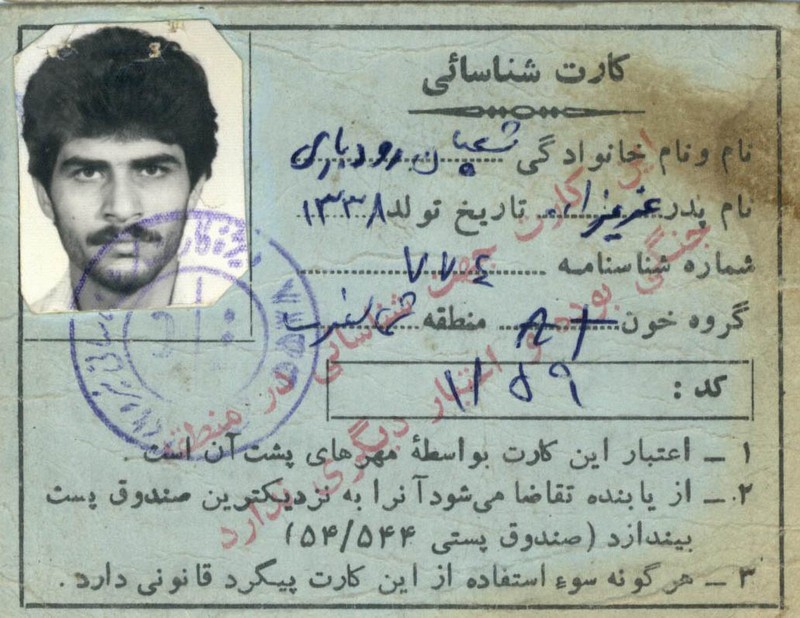 کارت شناسائی
نام ونام خانوادگی شعبان رودباری
نام پدر عزیزاله تاریخ تولد ۱۳۳۸
شماره شناسنامه ۷۷۴
گروه خون A+ منطقه شمالغرب
کد : ۱/۵۹
۱ ــ اعتبار این کارت بواسطهٔ مهرهای پشت آن است
۲ ــ از یابنده تقاضا می‌شود آنرا به نزدیکترین صندوق پست
بیندازد (صندوق پستی ۵۴/۵۴۴)
۳ ــ هرگونه سوء استفاده از این کارت پیگرد قانونی دارد .
این کارت جهت شناسائی در منطقه
جنگی بوده و اعتبار دیگری ندارد